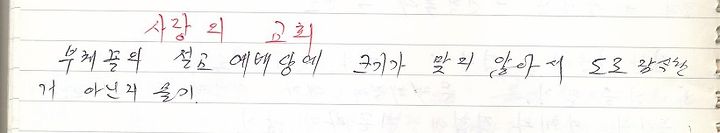 사랑의 교회
부채꼴의 설교 예배당에 크기가 맞의 않아서 도로 장식한
거 아닌지 슬기.